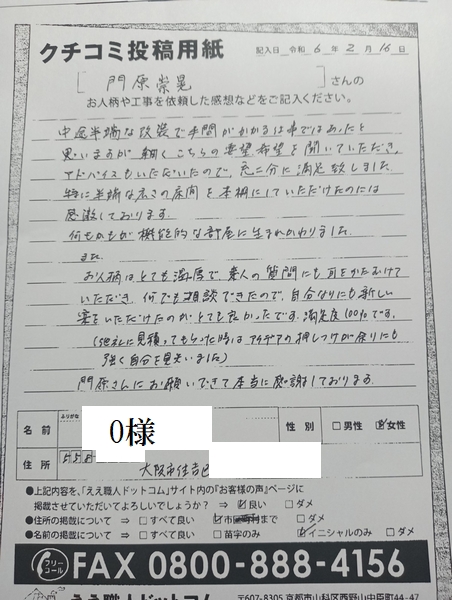 クチコミ投稿用紙
記入日 令和 6 年 2 月 16 日
[ 門原崇晃 ] さんの
お人柄や工事を依頼した感想などをご記入ください。
中途半端な改装で手間がかかる仕事ではあったと
思いますが 細くこちらの要望希望を聞いていただき、
アドバイスもいただいたので、充二分に満足致しました。
特に半端な広さの床間を本棚にしていただけたのには
感激しております。
何もかもが機能的な部屋に生まれかわりました。
また
お人柄はとても温厚で、素人の質問にも耳をかたむけて
いただき、何でも相談できたので、自分なりにも新しい
案をいただけたのがとても良かったです。満足度100%です。
(他社に見積ってもらった時はアイデアの押しつけが余りにも
強く自分を見失いました)
門原さんにお願いできて本当に感謝しております。
ふりがな
名前 O様 性別 □男性 ☑女性
住所 大阪市住吉区
●上記内容を、「ええ職人ドットコム」サイト内の『お客様の声』ページに
掲載させていただいてよろしいでしょうか? ⇒ ☑良い □ダメ
●住所の掲載について ⇒ □すべて良い ☑市まで □ダメ
●名前の掲載について ⇒ □すべて良い □苗字のみ ☑イニシャルのみ □ダメ
フリーコール FAX 0800-888-4156
ええ職人ドットコム 〒607-8305 京都市山科区西野山中臣町44-47